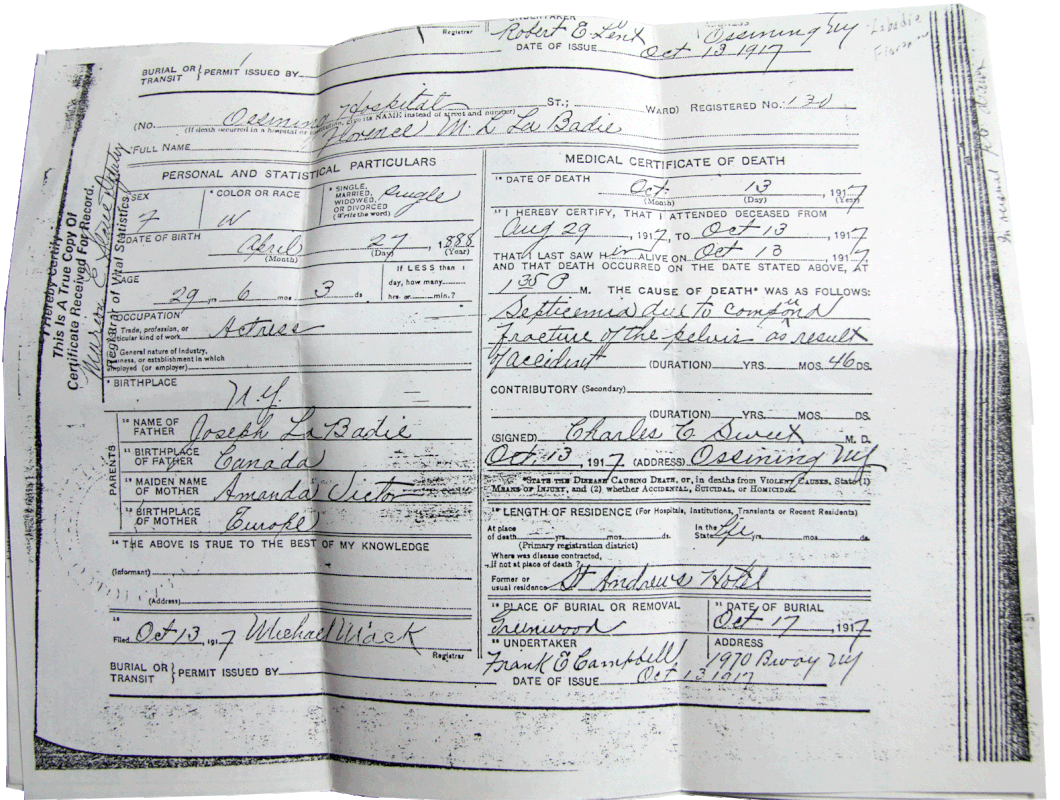 UNDERTAKER
Robert E Lent
Ossining NY
Registrar
DATE OF ISSUE Oct 13 1917
Labadie
BURIAL OR TRANSIT } PERMIT ISSUED BY
(No. Ossining Hospital ST.; WARD) REGISTERED No. 130
(If death occurred in a hospital or institution, give its NAME instead of street and number)
FULL NAME Florence M. L La Badie
PERSONAL AND STATISTICAL PARTICULARS
SEX F
COLOR OR RACE W
SINGLE, MARRIED, WIDOWED, OR DIVORCED (Write the word) Single
DATE OF BIRTH April 27, 1888
(Month) (Day) (Year)
AGE 29 yrs 6 mos 3 ds
If LESS than 1 day, how many hrs. or min.?
OCCUPATION
Trade, profession, or particular kind of work Actress
General nature of industry, business, or establishment in which employed (or employer)
BIRTHPLACE N.Y.
PARENTS
10 NAME OF FATHER Joseph La Badie
11 BIRTHPLACE OF FATHER Canada
12 MAIDEN NAME OF MOTHER Amanda Victor
13 BIRTHPLACE OF MOTHER Europe
14 THE ABOVE IS TRUE TO THE BEST OF MY KNOWLEDGE
(Informant)
(Address)
15
Filed Oct 13, 1917 Michael Mack
Registrar
BURIAL OR TRANSIT } PERMIT ISSUED BY
MEDICAL CERTIFICATE OF DEATH
16 DATE OF DEATH Oct. 13, 1917
(Month) (Day) (Year)
17 I HEREBY CERTIFY, THAT I ATTENDED DECEASED FROM
Aug 29, 1917, TO Oct 13, 1917,
THAT I LAST SAW H er ALIVE ON Oct 13, 1917,
AND THAT DEATH OCCURRED ON THE DATE STATED ABOVE, AT
1 30 P M. THE CAUSE OF DEATH* WAS AS FOLLOWS:
Septicemia due to compound
fracture of the pelvis as result
of accident (DURATION) YRS. MOS. 46 DS.
CONTRIBUTORY (Secondary)
(DURATION) YRS. MOS. DS.
(SIGNED) Charles C Sweet M. D.
Oct. 13, 1917. (ADDRESS) Ossining NY
*STATE THE DISEASE CAUSING DEATH, OR, in deaths from VIOLENT CAUSES, State (1) MEANS OF INJURY, and (2) whether ACCIDENTAL, SUICIDAL, OR HOMICIDAL
18 LENGTH OF RESIDENCE (For Hospitals, Institutions, Transients or Recent Residents)
At place of death yrs. mos. ds. In the State Life yrs. mos. ds.
(Primary registration district)
Where was disease contracted, If not at place of death?
Former or usual residence St Andrews Hotel
19 PLACE OF BURIAL OR REMOVAL
Greenwood
DATE OF BURIAL
Oct 17, 1917
20 UNDERTAKER
Frank E Campbell
ADDRESS
1970 Bway NY
DATE OF ISSUE Oct 13 1917
I Hereby Certify
This Is A True Copy Of
Certificate Received For Record.
Registrar of Vital Statistics